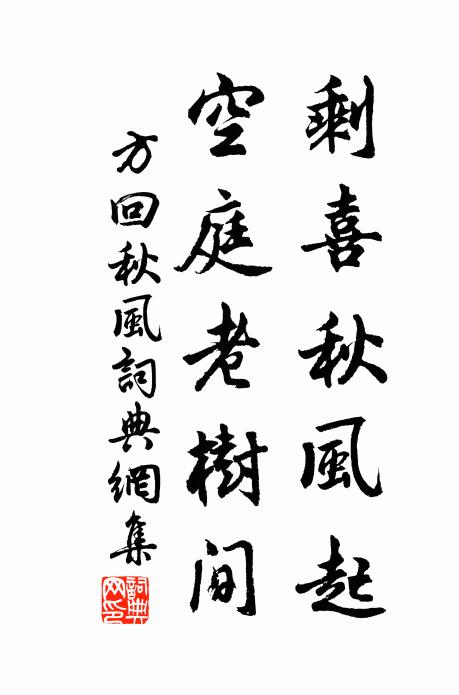 剩喜秋風起
空庭老樹間
方回秋風詞典網集
詞典網印